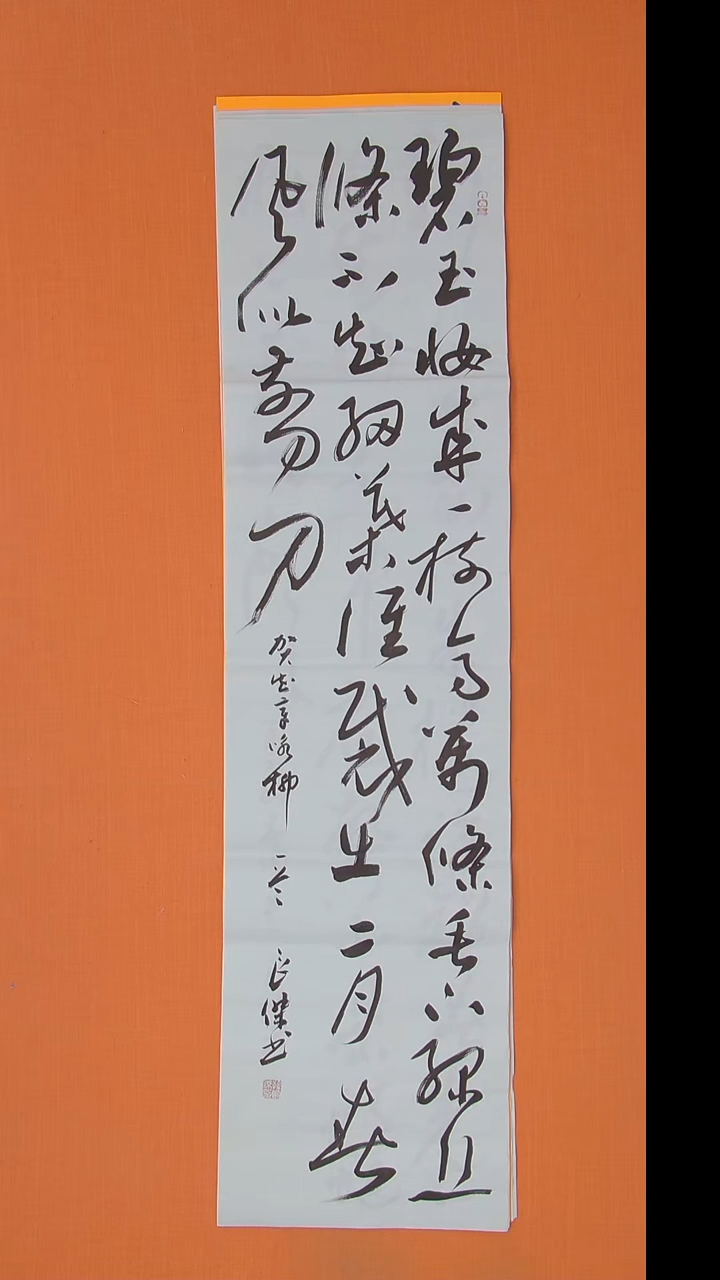 碧玉妝成一树高萬條垂下綠丝
條不知細葉誰裁出二月春
風似剪刀
賀知章咏柳 一首 良傑书